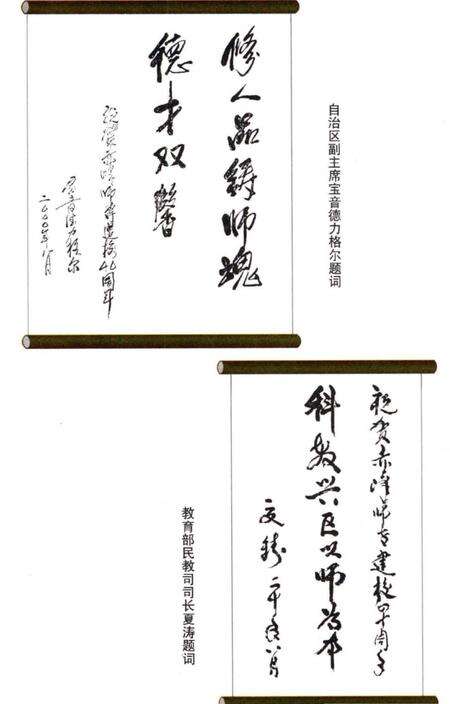 自治区副主席宝音德力格尔题词
修人品铸师魂
德才双馨
祝贺赤峰师专建校40周年
宝音德力格尔
二〇〇〇年八月
祝贺赤峰师专建校四十周年
科教兴区以师为本
夏涛 二千年八月
教育部民教司司长夏涛题词